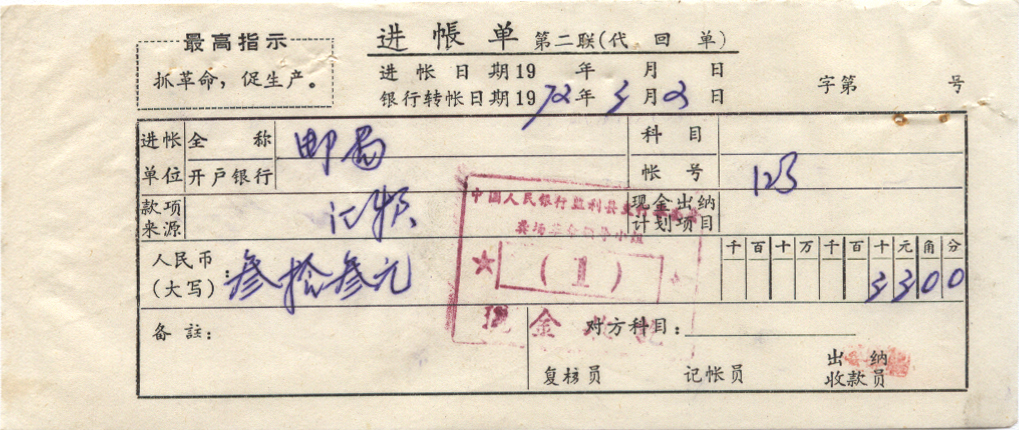 最高指示
抓革命，促生产。
进帐单 第二联(代回单)
进帐日期19 年 月 日
银行转帐日期1972年3月2日
字第 号
进帐单位
全称 邮局
开户银行
科目
帐号 123
款项来源
现金出纳计划项目
人民币(大写)：叁拾叁元
千百十万千百十元角分
3300
中国人民银行监利县支行
革命领导小组
(1)
现金
备註：
对方科目：
复核员
记帐员
出纳收款员